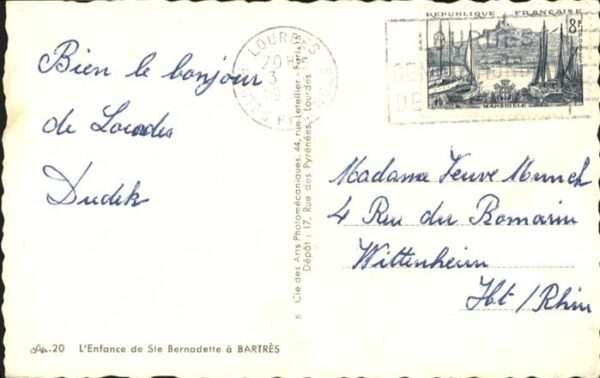 Bien le bonjour
de Lourdes
Dudek
LOURDES
20 H
3
REPUBLIQUE FRANÇAISE
8F
MARSEILLE
Cie des Arts Photomécaniques, 44, rue Letellier - Paris
Dépôt : 17, Rue des Pyrénées, Lourdes
Madame Veuve Munch
4 Rue du Romarin
Wittenheim
Ht/Rhin
20 L'Enfance de Ste Bernadette à BARTRÈS